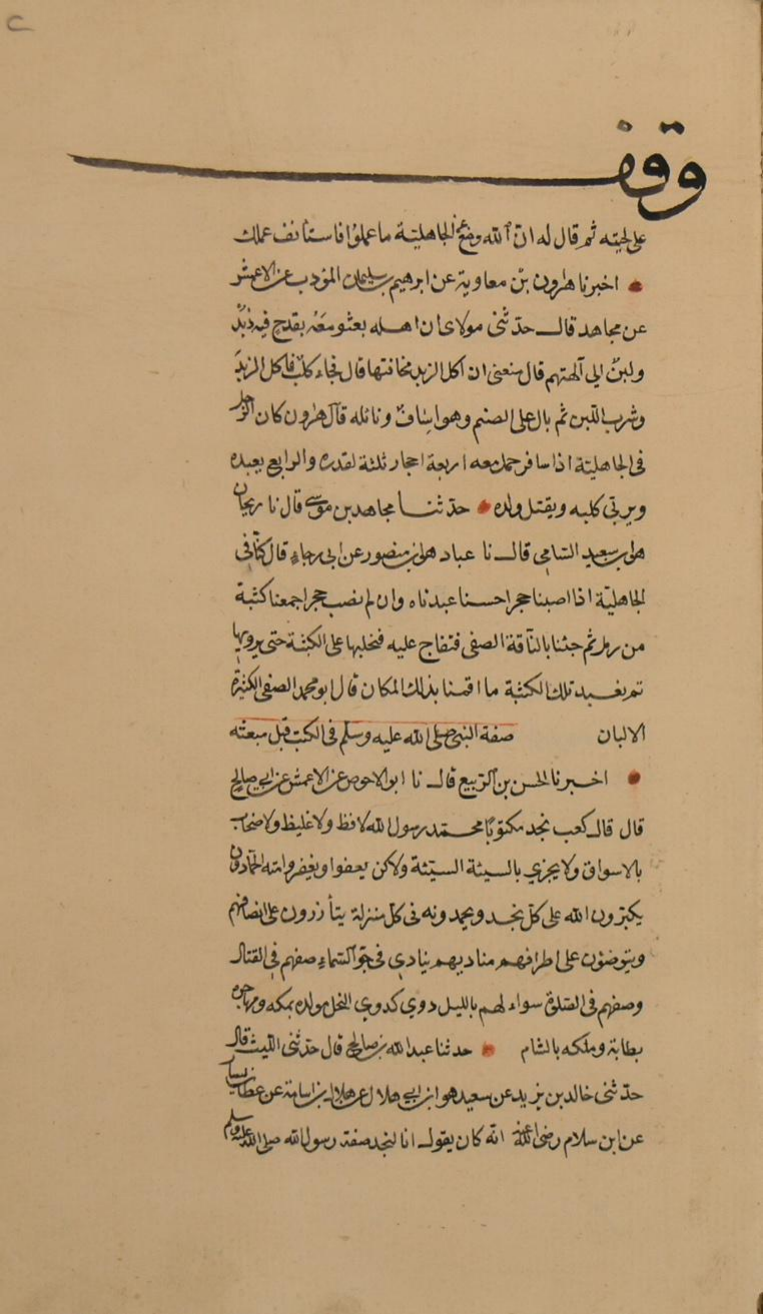 وقف
على لحيته ثم قال له ان الله وضع عن الجاهلية ما عملوا فاستأنف عملك
اخبرنا هرون بن معاوية عن ابرهيم بن سليمان المؤدب عن الاعمش
عن مجاهد قال حدثنى مولاى ان اهله بعثو معه بقدح فيه زبد
ولبن الى آلهتهم قال فمنعنى ان اكل الزبد مخافتها قال فجاء كلب فاكل الزبد
وشرب اللبن ثم بال على الصنم وهو اساف ونائله قال هرون كان الرجل
فى الجاهلية اذا سافر حمل معه اربعة احجار ثلثة لقدره والرابع يعبده
ويربى كلبه ويقتل ولده حدثنا مجاهد بن موسى قال نا ريحان
هو ابن سعيد السامى قال نا عباد هو ابن منصور عن ابى رجاء قال كنا فى
الجاهلية اذا اصبنا حجرا حسنا عبدناه وان لم نصب حجرا جمعنا كثبة
من رمل ثم جئنا بالناقة الصفى فتفاج عليه فنحلبها على الكثبة حتى نرويها
ثم نعبد تلك الكثبة ما اقمنا بذلك المكان قال ابو محمد الصفى الكثيرة
الالبان صفة النبى صلى الله عليه وسلم فى الكتب قبل مبعثه
اخبرنا الحسن بن الربيع قال نا ابو الاحوص عن الاعمش عن ابى صالح
قال قال كعب نجد مكتوبا محمد رسول الله لا فظ ولا غليظ ولا صخاب
بالاسواق ولا يجزي بالسيئة السيئة ولاكن يعفوا ويغفر وامته الحمادون
يكبرون الله على كل نجد ويحمدونه فى كل منزلة يتأزرون على انصافهم
ويتوضؤن على اطرافهم مناديهم ينادي فى جو السماء صفهم فى القتال
وصفهم فى الصلوة سواء لهم بالليل دوي كدوي النحل مولده بمكه ومهاجره
بطابة وملكه بالشام حدثنا عبد الله بن صالح قال حدثنى الليث قال
حدثنى خالد بن يزيد عن سعيد هو ابن ابى هلال عن هلال بن اسامة عن عطاء بن يسار
عن ابن سلام رضى الله عنه انه كان يقول انا لنجد صفة رسول الله صلى الله عليه وسلم